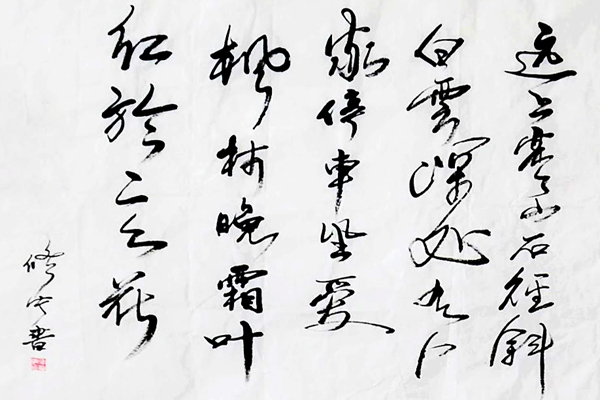 远上寒山石径斜
白雲深处有人
家停車坐愛
枫林晚霜叶
红於二月花
修 書